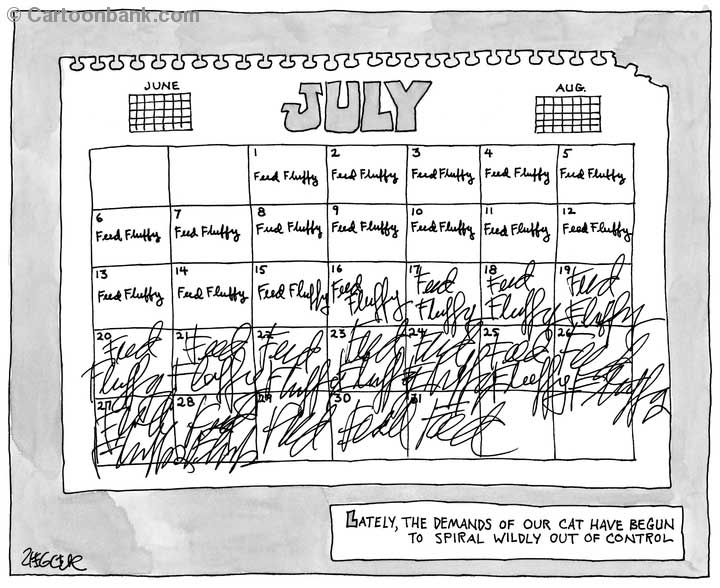 © Cartoonbank.com
JUNE
JULY
AUG.
1 2 3 4 5
Feed Fluffy Feed Fluffy Feed Fluffy Feed Fluffy Feed Fluffy
6 7 8 9 10 11 12
Feed Fluffy Feed Fluffy Feed Fluffy Feed Fluffy Feed Fluffy Feed Fluffy Feed Fluffy
13 14 15 16 17 18 19
Feed Fluffy Feed Fluffy Feed Fluffy Feed Feed Feed Feed
Fluffy Fluffy Fluffy Fluffy
20 21 22 23 24 25 26
Feed Feed Feed Feed Feed Feed Feed
Fluffy Fluffy Fluffy Fluffy Fluffy Fluffy Fluffy
27 28 29 30 31
Feed Feed Feed
LATELY, THE DEMANDS OF OUR CAT HAVE BEGUN
TO SPIRAL WILDLY OUT OF CONTROL